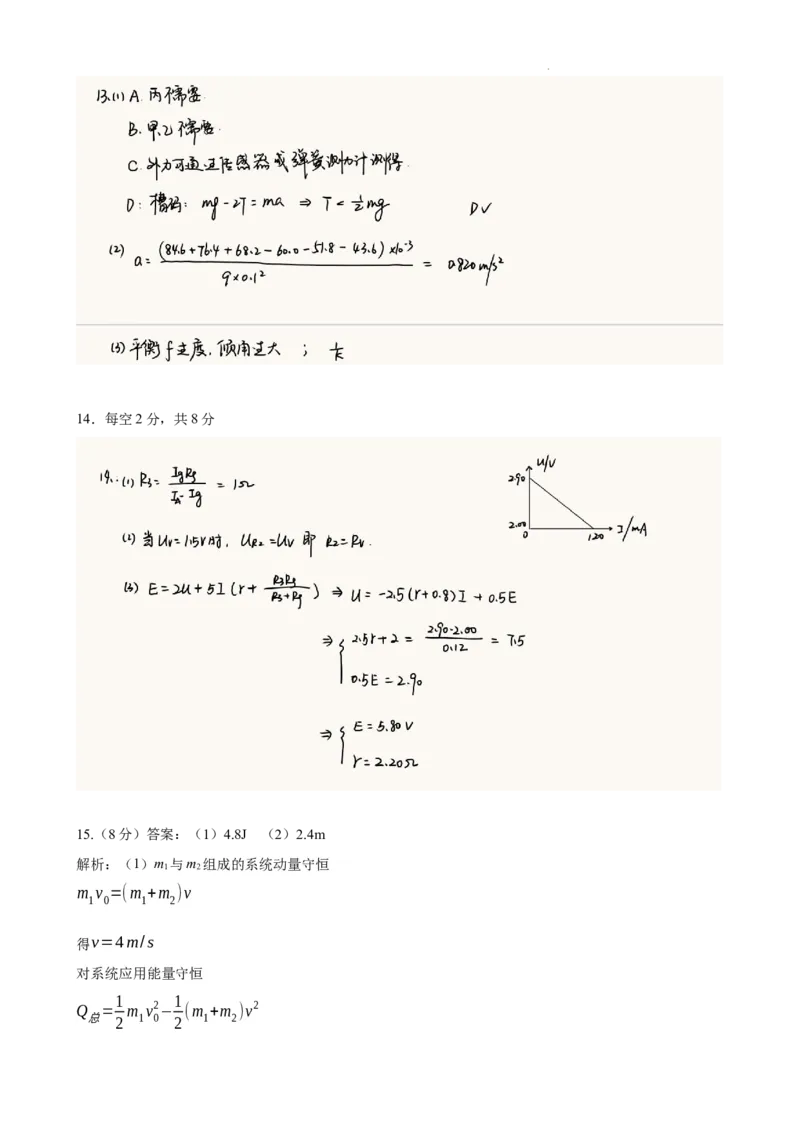 13.(1) A. 丙不需要.
B. 甲乙不需要.
C. 外力可通过传感器或弹簧测力计测得.
D: 槽码: mg-2T=ma ⇒ T<½mg DV
(2) a= (84.6+76.4+68.2-60.0-51.8-43.6)×10⁻³ / 9×0.1² = 0.820m/s²
(3) 平衡f过度, 倾角过大 ; 1/k
14．每空2分，共8分
14.: (1) R₃= IgRg / (I_A-Ig) = 1Ω
U/V
2.90
2.00
0
120
I/mA
(2) 当Uv=1.5V时, U_R2=Uv 即 R2=Rv.
(3) E=2U+5I(r+ R₃Rg / (R₃+Rg)) ⇒ U=-2.5(r+0.8)I+0.5E
⇒ { 2.5r+2 = (2.90-2.00) / 0.12 = 7.5
0.5E=2.90
⇒ { E=5.80V
r=2.20Ω
15.（8分）答案：（1）4.8J （2）2.4m
解析：（1）m₁与m₂组成的系统动量守恒
m₁v₀=(m₁+m₂)v
得v=4m/s
对系统应用能量守恒
Q总=½m₁v₀²−½(m₁+m₂)v²